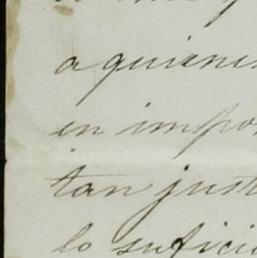 a quienes
en impor
tan just
lo suficie